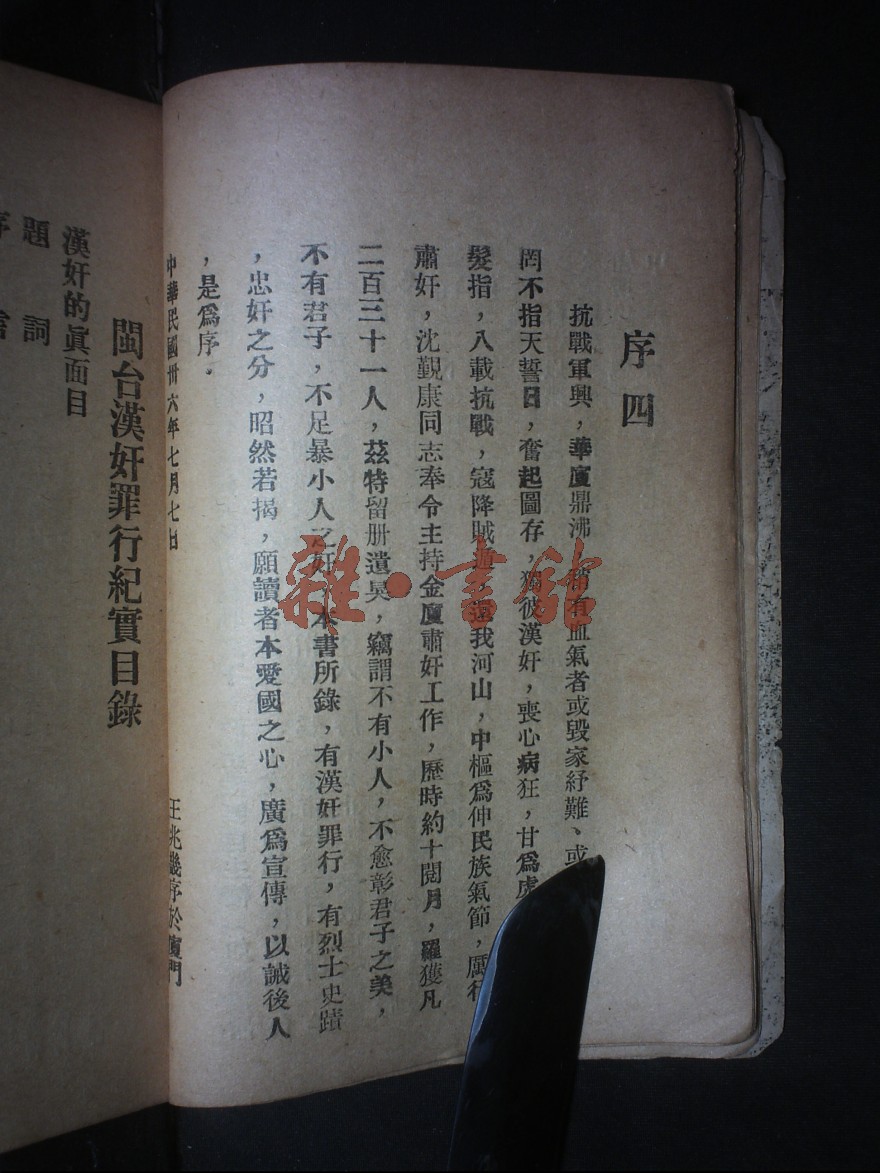 序四
抗戰軍興,華廈鼎沸,稍有血氣者或毀家紓難、或
罔不指天誓日,奮起圖存,獨彼漢奸,喪心病狂,甘爲虎
髮指,八載抗戰,寇降賊遁,還我河山,中樞爲伸民族氣節,厲行
肅奸,沈覲康同志奉令主持金廈肅奸工作,歷時約十閱月,羅獲凡
二百三十一人,茲特留册遺吳,竊謂不有小人,不愈彰君子之美,
不有君子,不足暴小人之奸,本書所錄,有漢奸罪行,有烈士史蹟
,忠奸之分,昭然若揭,願讀者本愛國之心,廣爲宣傳,以誡後人
,是爲序。
中華民國卅六年七月七日
王兆畿序於廈門
閩台漢奸罪行紀實目錄
漢奸的眞面目
題詞
序言
雜·書館